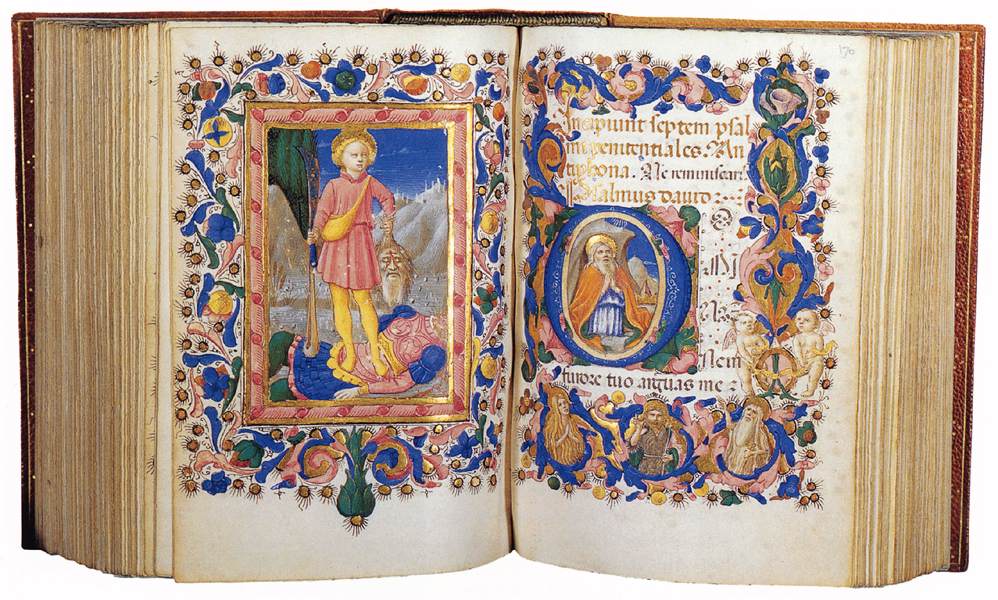 Incipiunt septem psal
mi penitentiales. An
tiphona. Ne reminiscar
Psalmus david :
D O
MI
NE
Ne in
furore tuo arguas me :